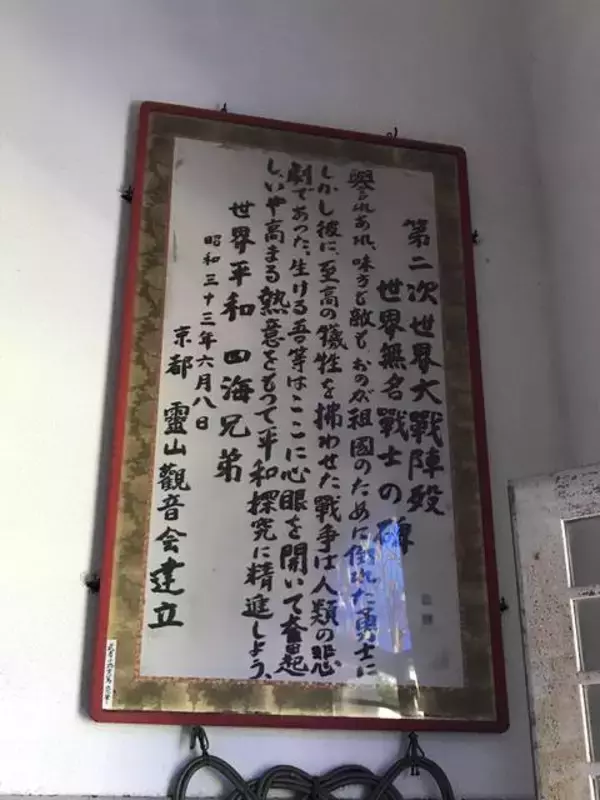 第二次世界大戰陣歿
世界無名戰士の碑
譽れあれ、味方も敵も、おのが祖國のために倒れた勇士に
しかし彼に、至高の犠牲を拂わせた戰争は人類の悲
劇であった、生ける吾等はここに心眼を開いて奮起
し、いや高まる熱意をもつて平和探究に精進しよう、
世界平和 四海兄弟
昭和三十三年六月八日
京都 靈山觀音会建立